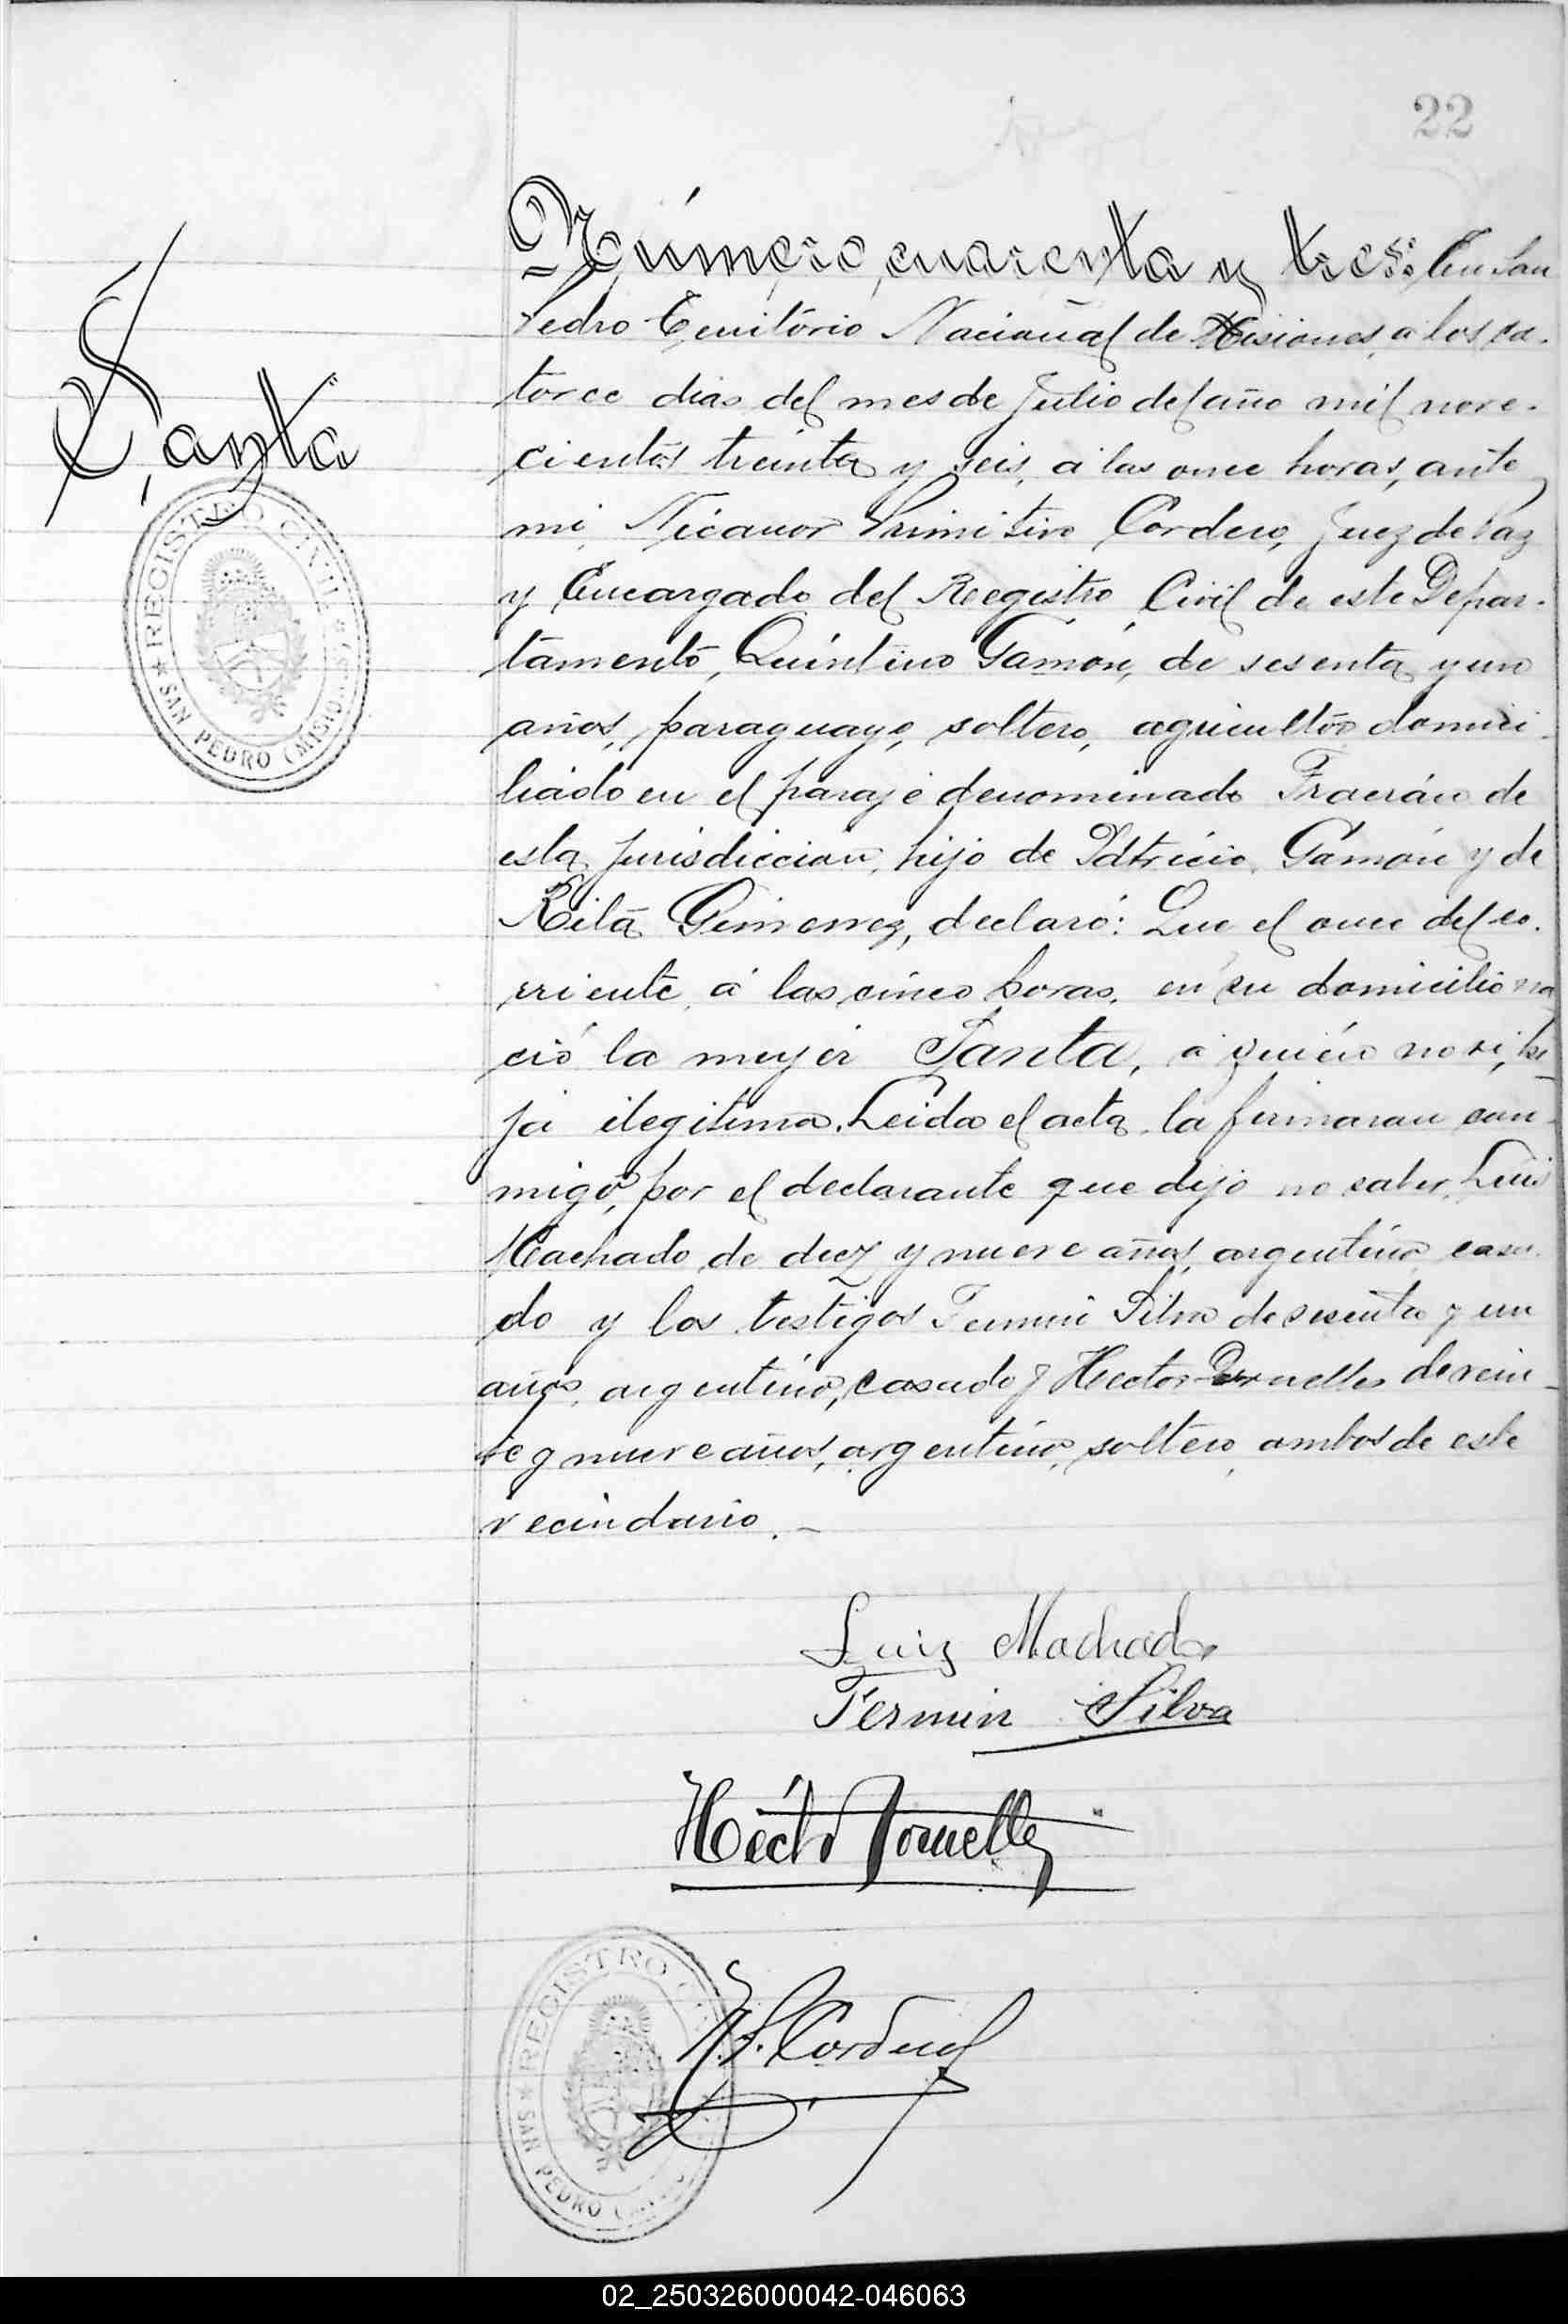 22
Número cuarenta y tres: En San
Pedro Territorio Nacional de Misiones, a los ca-
torce dias del mes de Julio del año mil nove-
cientos treinta y seis, a las once horas, ante
mi, Nicanor Primitivo Cordero, Juez de Paz
y Encargado del Registro Civil de este Depar-
tamento, Quintino Gamón, de sesenta y un
años, paraguayo, soltero, agricultor domici-
liado en el paraje denominado Fracrán de
esta jurisdiccion, hijo de Patricio Gamón y de
Rita Gimenez, declaró: Que el once del co-
rriente, á las cinco horas, en su domicilio na
ció la mujer Santa, a quién no vi, hi-
ja ilegitima. Leida el acta la firmaran con-
migo, por el declarante que dijo no saber, Luis
Machado de diez y nueve años, argentino casa-
do y los testigos Fermin Silva de sesenta y un
años, argentino, casado y Hector de vein-
te y nueve años, argentino, soltero, ambos de este
vecindario.-
Santa
REGISTRO CIVIL
SAN PEDRO (MISIONES)
Luis Machado
Fermin Silva
Héctor
N.P. Cordero
REGISTRO
SAN PEDRO
02_250326000042-046063